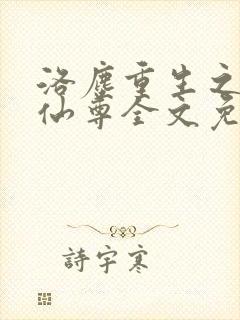 洛塵重生之
仙尊全文免
詩宇寒